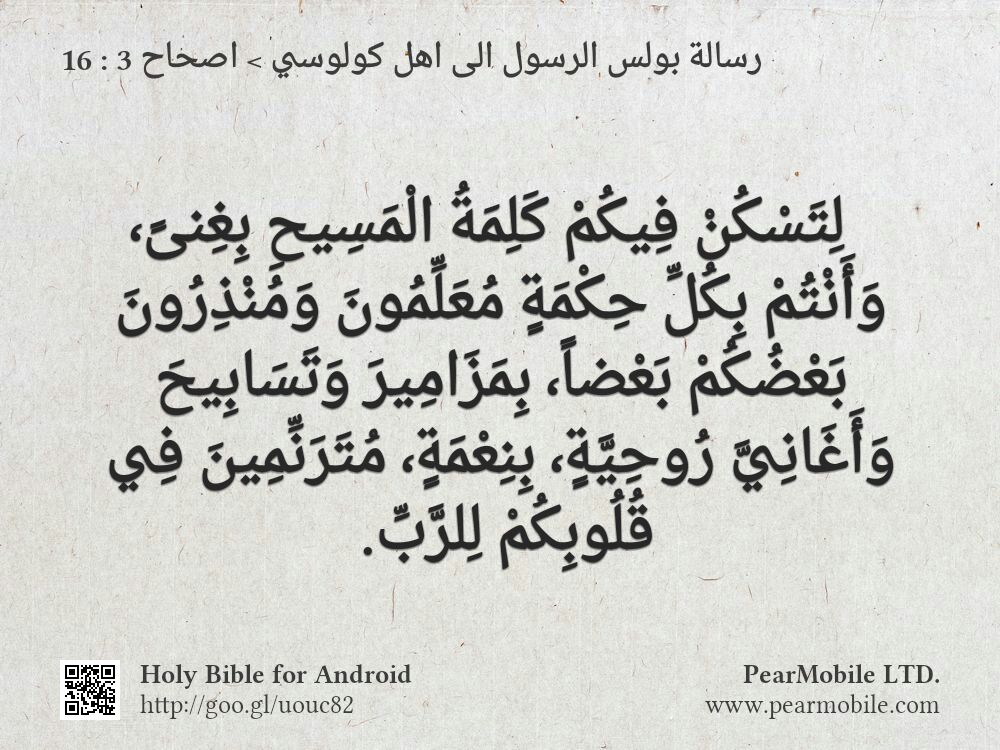 رسالة بولس الرسول الى اهل كولوسي > اصحاح 3 : 16
لِتَسْكُنْ فِيكُمْ كَلِمَةُ الْمَسِيحِ بِغِنىً،
وَأَنْتُمْ بِكُلِّ حِكْمَةٍ مُعَلِّمُونَ وَمُنْذِرُونَ
بَعْضُكُمْ بَعْضاً، بِمَزَامِيرَ وَتَسَابِيحَ
وَأَغَانِيَّ رُوحِيَّةٍ، بِنِعْمَةٍ، مُتَرَنِّمِينَ فِي
قُلُوبِكُمْ لِلرَّبِّ.
Holy Bible for Android
http://goo.gl/uouc82
PearMobile LTD.
www.pearmobile.com